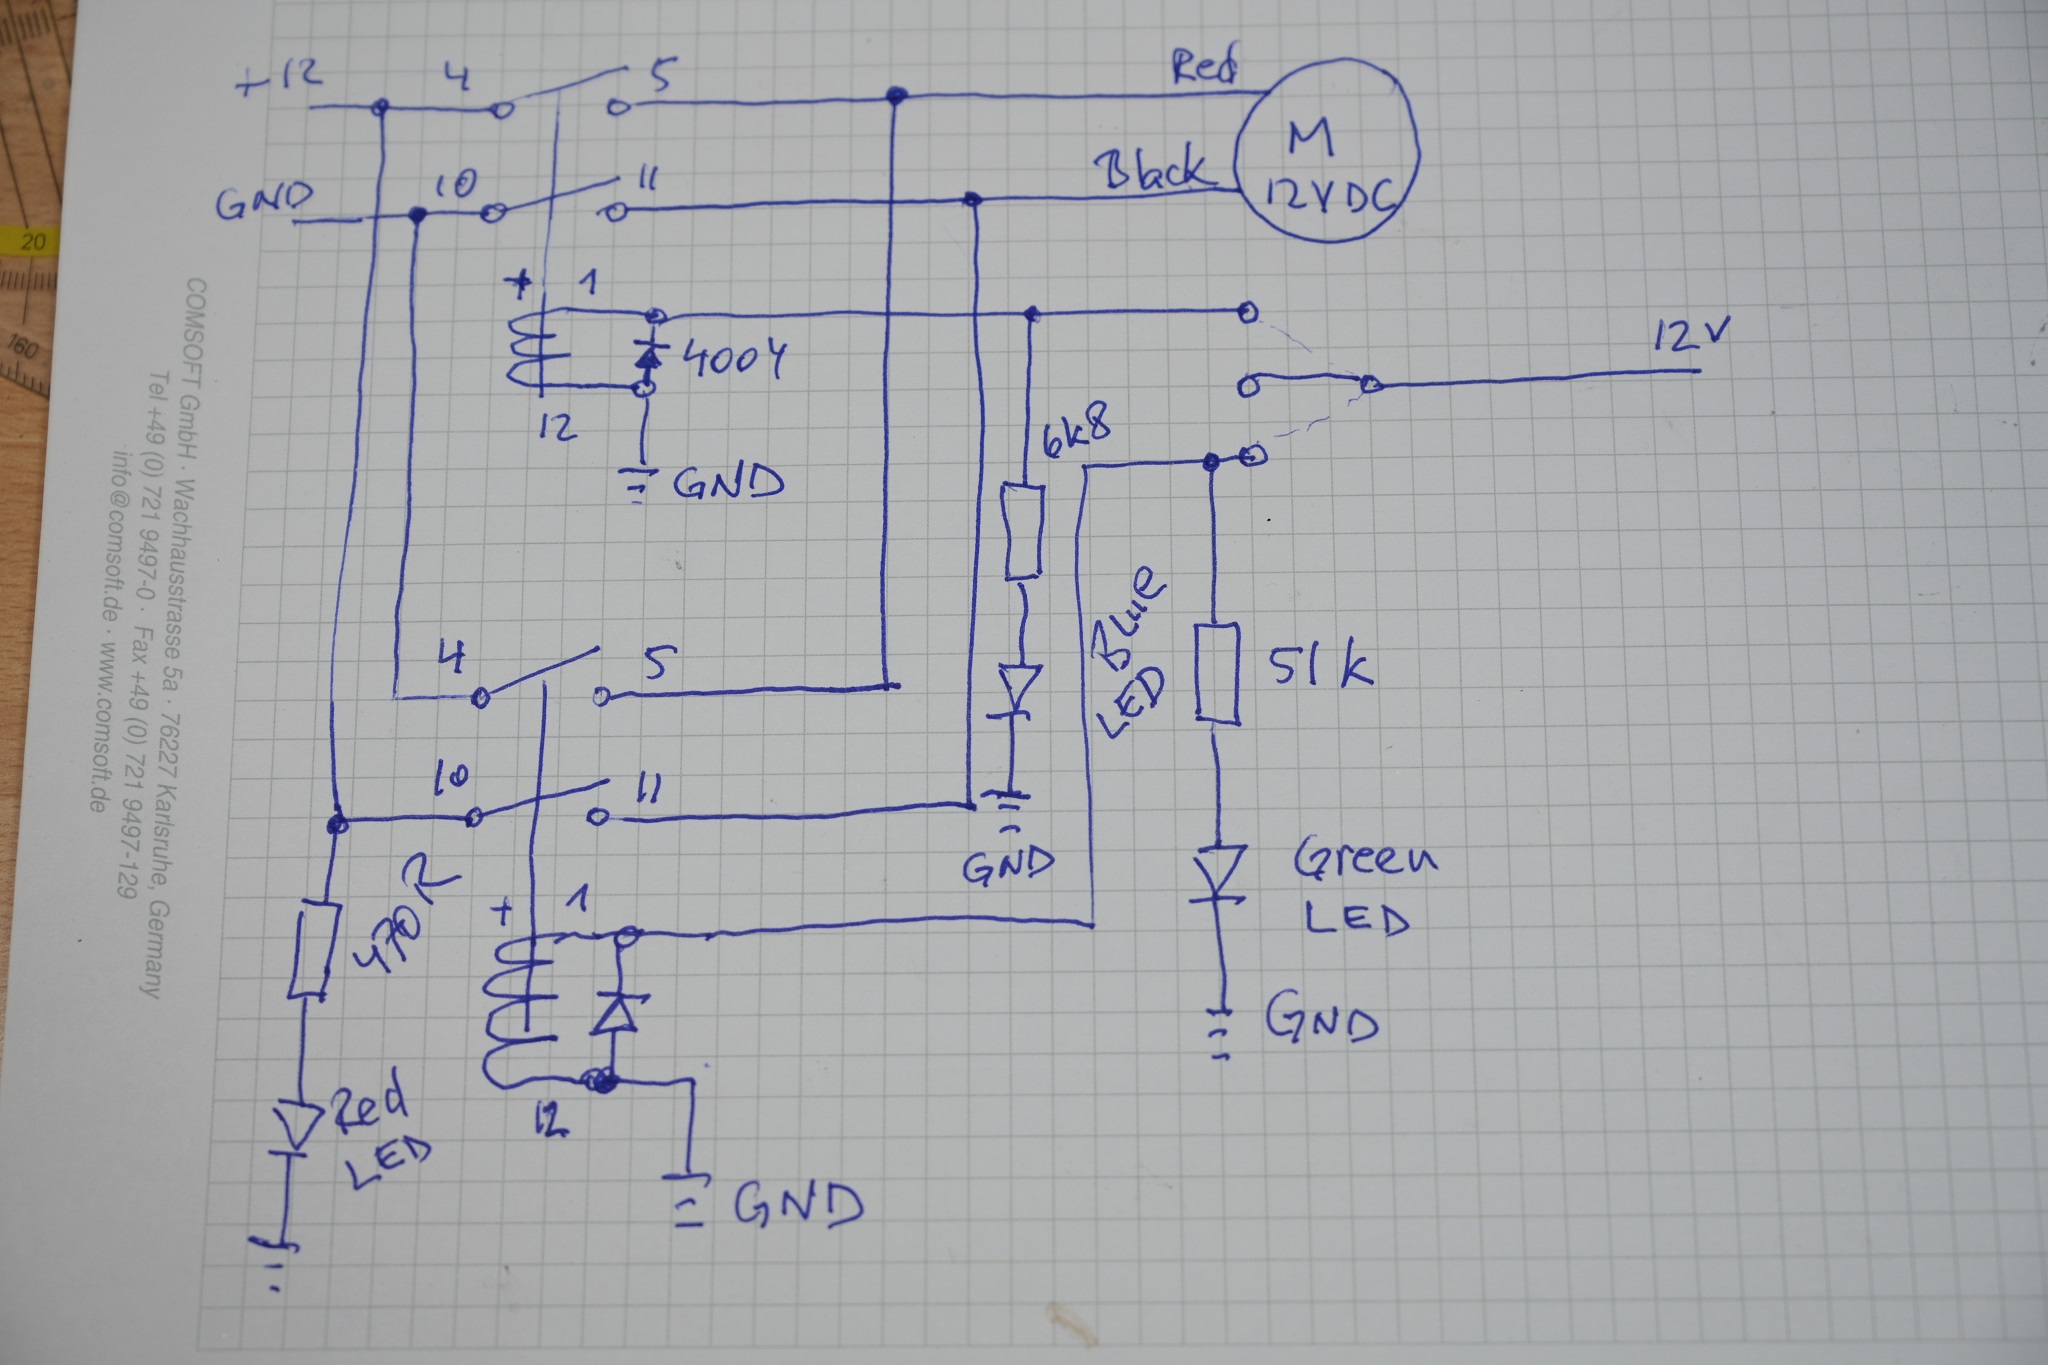 +12
4
5
Red
M
12VDC
GND
10
11
Black
+
1
4004
12
GND
12V
6k8
Blue
LED
51k
4
5
10
11
GND
470R
+
1
12
GND
Green
LED
GND
Red
LED
20
160
COMSOFT GmbH · Wachhausstrasse 5a · 76227 Karlsruhe, Germany
Tel +49 (0) 721 9497-0 · Fax +49 (0) 721 9497-129
info@comsoft.de · www.comsoft.de